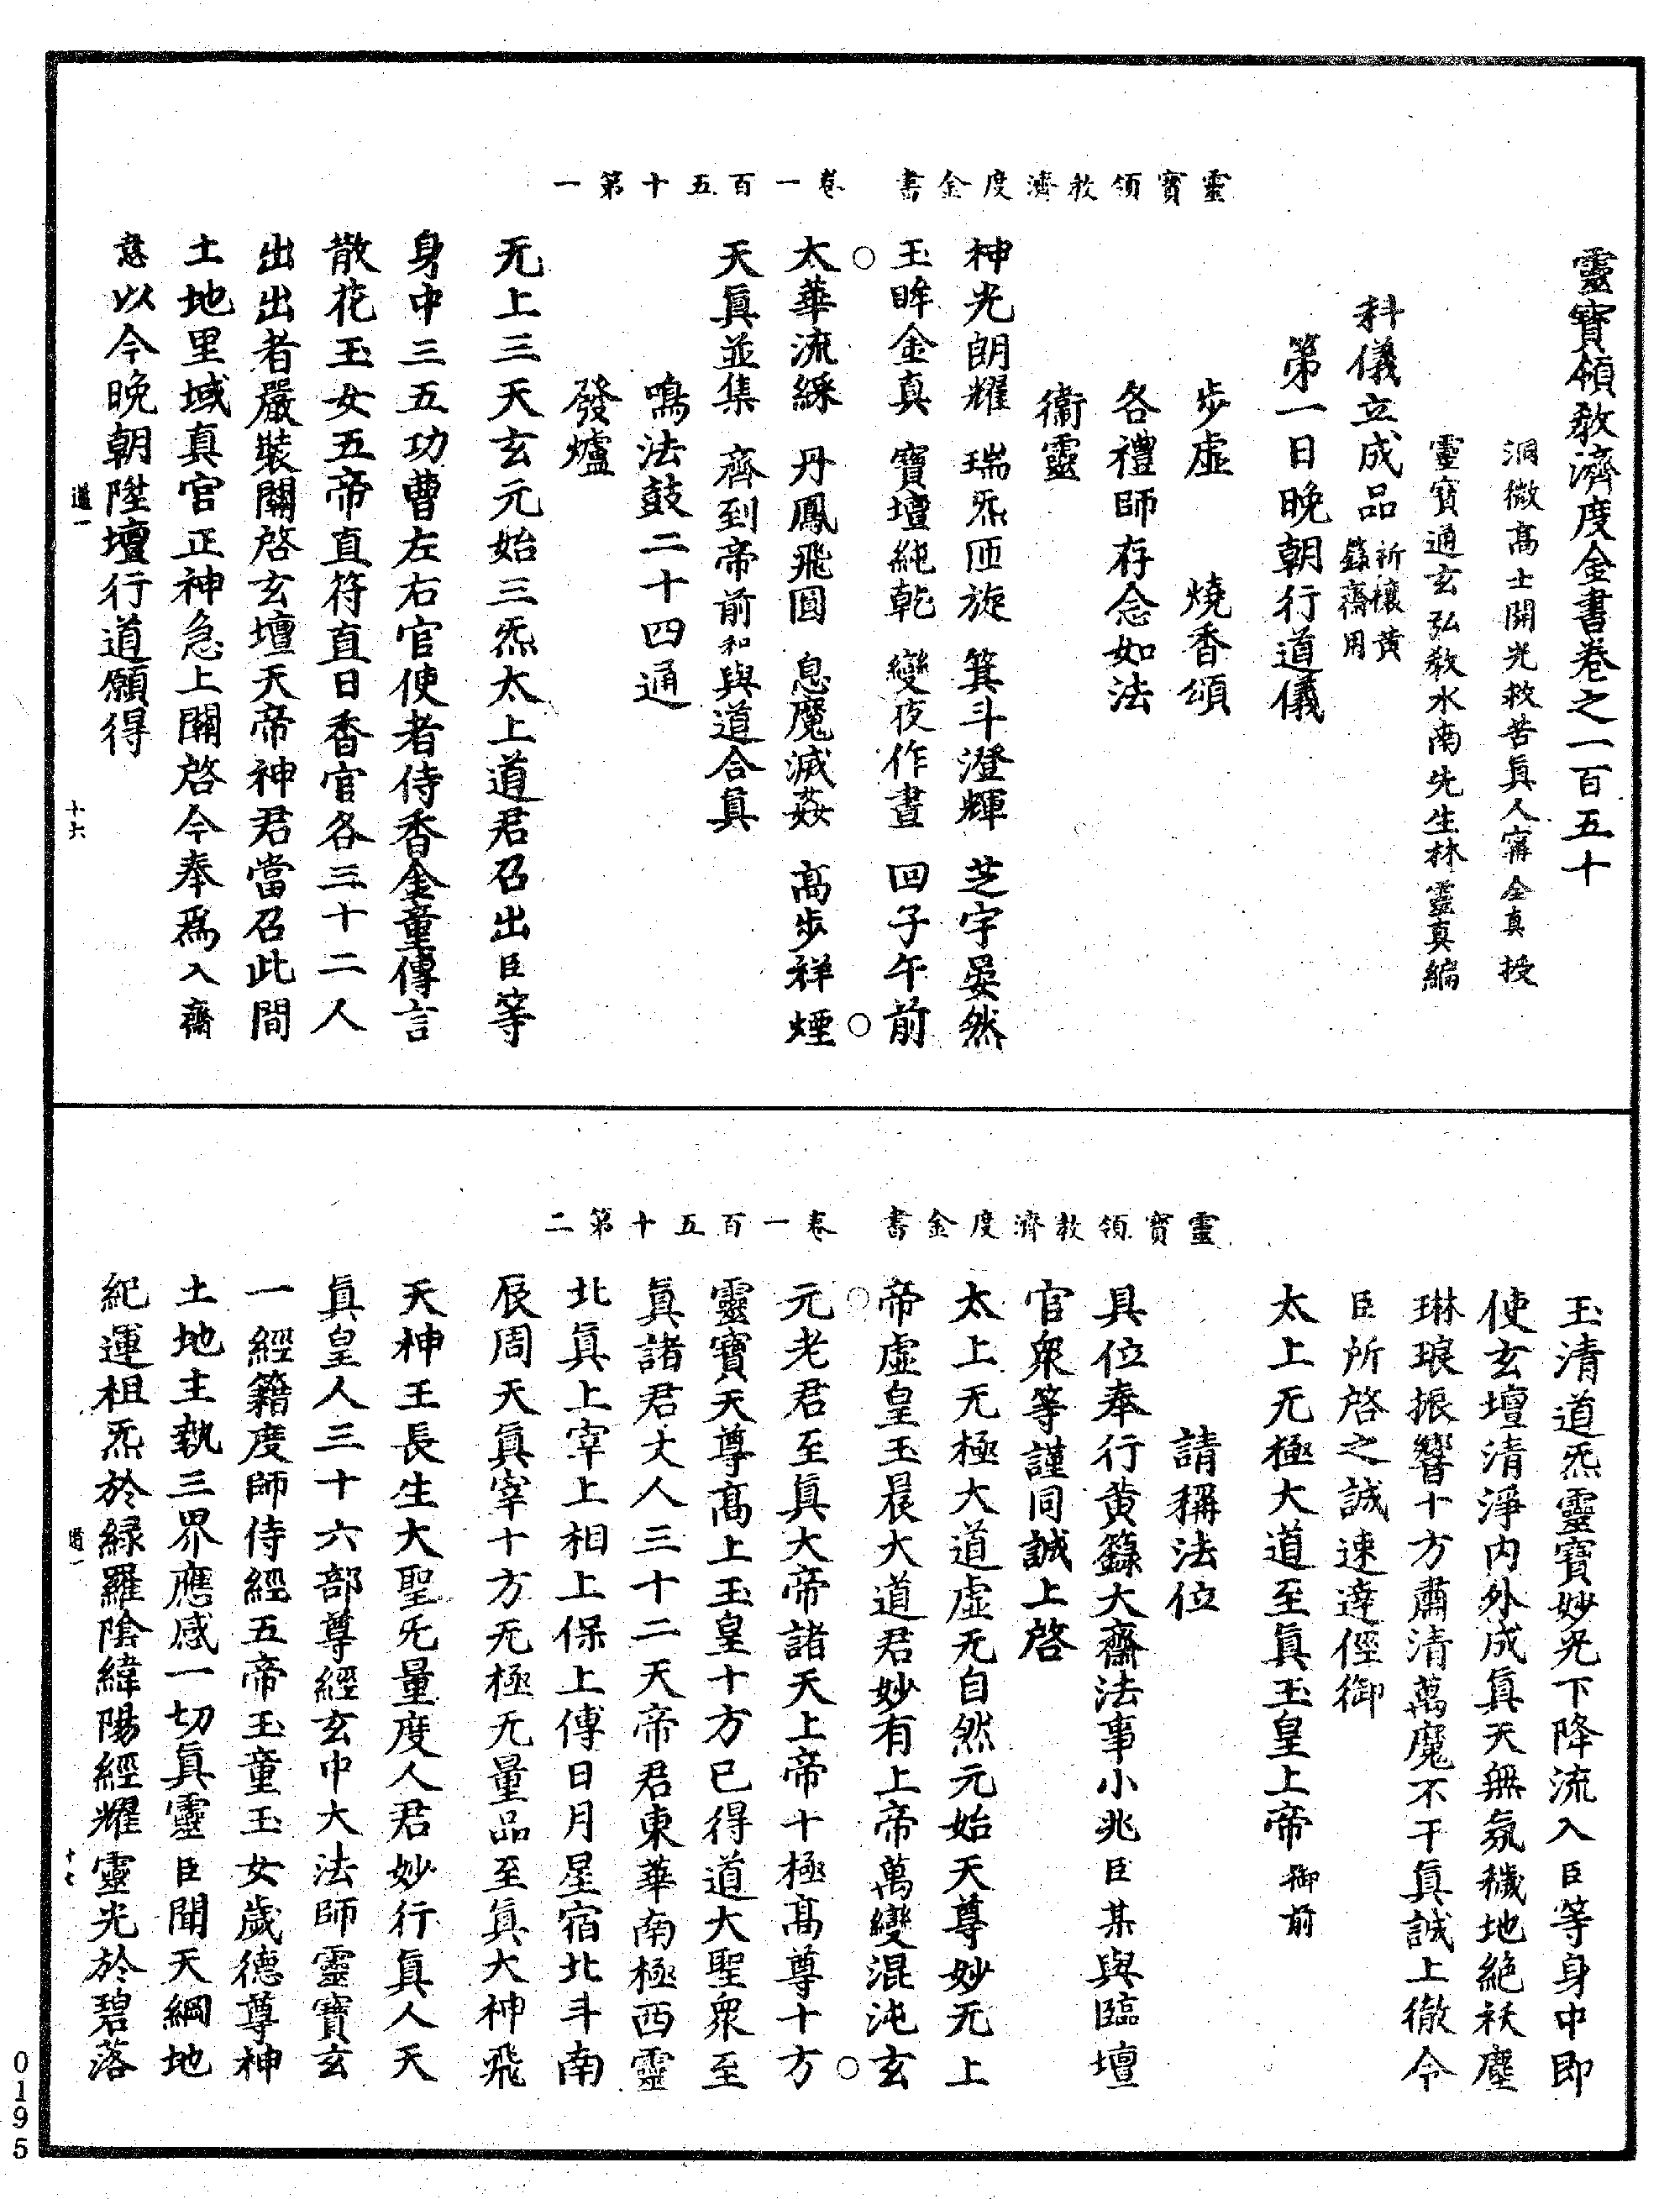 靈寶領教濟度金書卷一百五十第一
靈寶領教濟度金書卷之一百五十
洞微高士開光救苦眞人甯全真授
靈寶通玄弘教水南先生林靈真編
科儀立成品祈禳黃籙齋用
第一日晚朝行道儀
步虛 燒香頌
各禮師存念如法
衞靈
神光朗耀 瑞炁匝旋 箕斗澄輝 芝宇晏然
玉眸金真 寶壇純乾 變夜作晝 回子午前
太華流綵 丹鳳飛圓 息魔滅姦 高步祥煙
天眞並集 齊到帝前和與道合眞
鳴法鼓二十四通
發爐
无上三天玄元始三炁太上道君召出臣等
身中三五功曹左右官使者侍香金童傳言
散花玉女五帝直符直日香官各三十二人
出出者嚴裝關啓玄壇天帝神君當召此間
土地里域真官正神急上關啓今奉爲入齋
意以今晚朝陞壇行道願得
道一 十六
靈寶領教濟度金書卷一百五十第二
玉清道炁靈寶妙光下降流入臣等身中即
使玄壇清淨內外成眞天無氛穢地絕袄塵
琳琅振響十方肅清萬魔不干眞誠上徹令
臣所啓之誠速達徑御
太上无極大道至眞玉皇上帝御前
請稱法位
具位奉行黃籙大齋法事小兆臣某與臨壇
官衆等謹同誠上啓
太上无極大道虛无自然元始天尊妙无上
帝虛皇玉晨大道君妙有上帝萬變混沌玄
元老君至眞大帝諸天上帝十極高尊十方
靈寶天尊高上玉皇十方已得道大聖衆至
眞諸君丈人三十二天帝君東華南極西靈
北眞上宰上相上保上傅日月星宿北斗南
辰周天眞宰十方无極无量品至眞大神飛
天神王長生大聖无量度人君妙行眞人天
眞皇人三十六部尊經玄中大法師靈寶玄
一經籍度師侍經五帝玉童玉女歲德尊神
土地主執三界應感一切眞靈臣聞天綱地
紀運祖炁於緑羅陰緯陽經耀靈光於碧落
道一 十七
0195